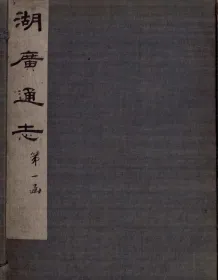 湖廣通志
第一函